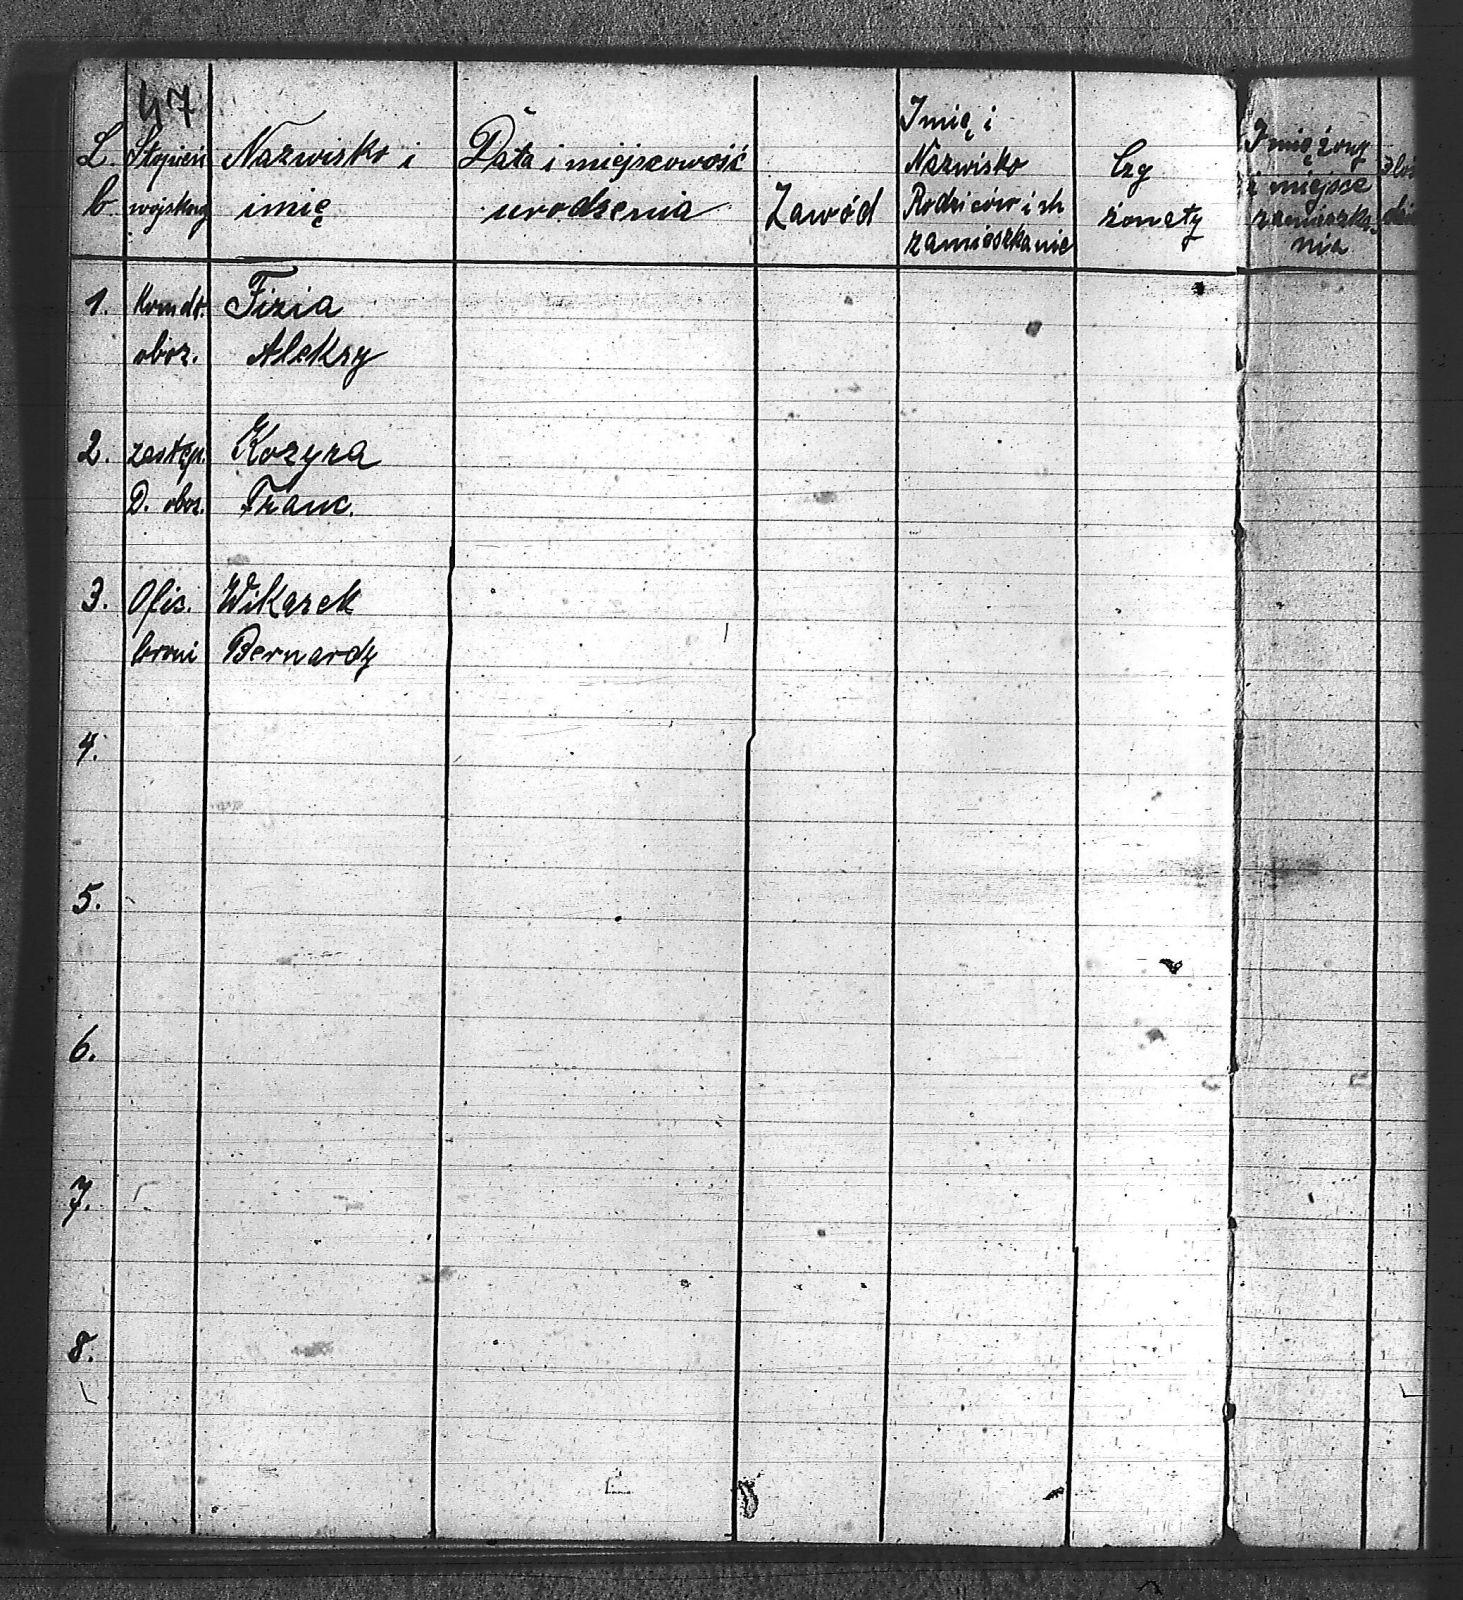 47
L. b.
Stopień wojskowy
Nazwisko i imię
Data i miejscowość urodzenia
Zawód
Imię i Nazwisko Rodziców i ich zamieszkanie
Czy żonaty
Imię żony i miejsce zamieszkania
1. Komdt. Fizia
oboz. Aleksy
2. zastęp. Kozyra
D. oboz. Franc.
3. Ofic. Wikarek
broni Bernardy
4.
5.
6.
7.
8.